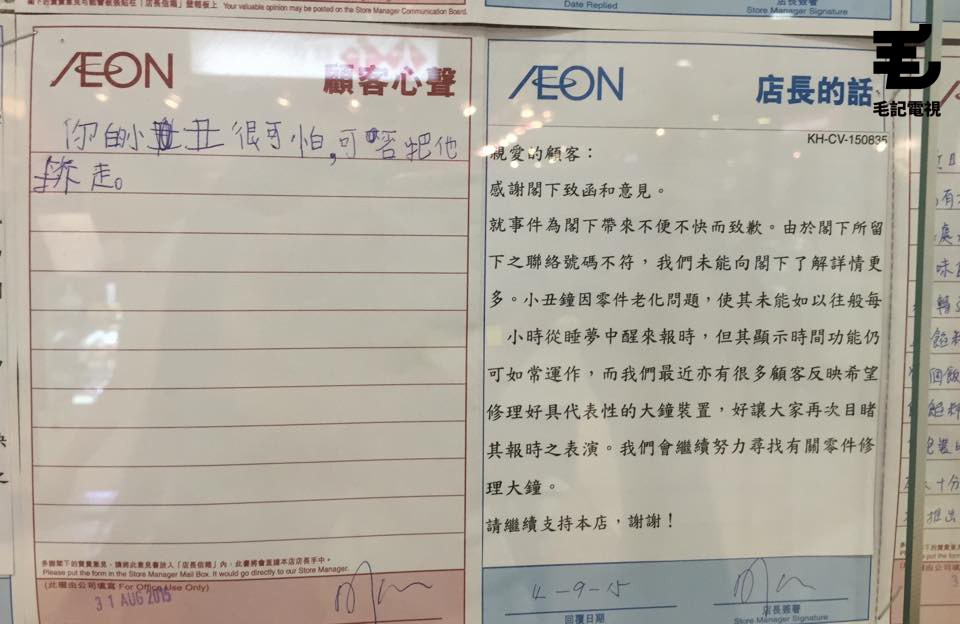 壁報板上 Your valuable opinion may be posted on the Store Manager Communication Board.
Date Replied
店長簽署
Store Manager Signature
毛記電視
ÆON
顧客心聲
你的小丑很可怕,可唔把他
拆走。
多謝閣下的寶貴意見,請將此意見書放入「店長信箱」內,此書將會直達本店店長手中。
Please put the form in the Store Manager Mail Box. It would go directly to our Store Manager.
(此欄由公司填寫 For Office Use Only)
31 AUG 2015
ÆON
店長的話
KH-CV-150835
親愛的顧客:
感謝閣下致函和意見。
就事件為閣下帶來不便不快而致歉。由於閣下所留
下之聯絡號碼不符,我們未能向閣下了解詳情更
多。小丑鐘因零件老化問題,使其未能如以往般每
小時從睡夢中醒來報時,但其顯示時間功能仍
可如常運作,而我們最近亦有很多顧客反映希望
修理好具代表性的大鐘裝置,好讓大家再次目睹
其報時之表演。我們會繼續努力尋找有關零件修
理大鐘。
請繼續支持本店,謝謝!
4-9-15
回覆日期
店長簽署
Store Manager Signature